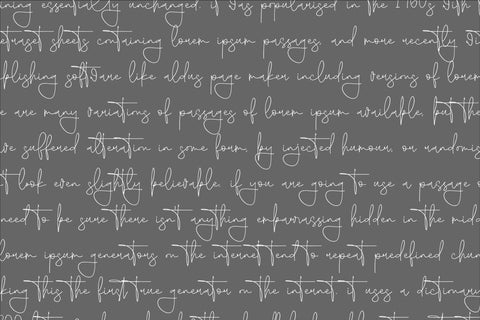 ining essentially unchanged. it was popularised in the 1960s with
letraset sheets containing lorem ipsum passages, and more recently with
blishing software like aldus page maker including versions of lorem
e are many variations of passages of lorem ipsum available, but the
ve suffered alteration in some form, by injected humour, or randomis
t look even slightly believable. if you are going to use a passage o
need to be sure there isn't anything embarrassing hidden in the midd
lorem ipsum generators on the internet tend to repeat predefined chun
king this the first true generator on the internet. it uses a dictionary